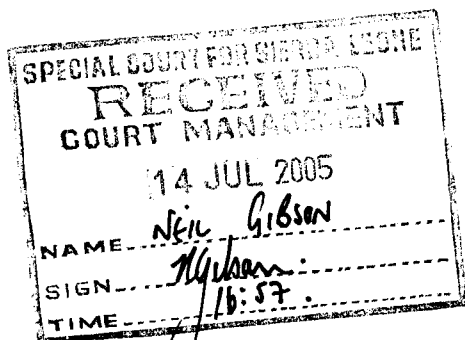 SPECIAL COURT FOR SIERRA LEONE
RECEIVED
COURT MANAGEMENT
14 JUL 2005
NAME NEIL GIBSON
SIGN NGibson.
TIME 16:57.